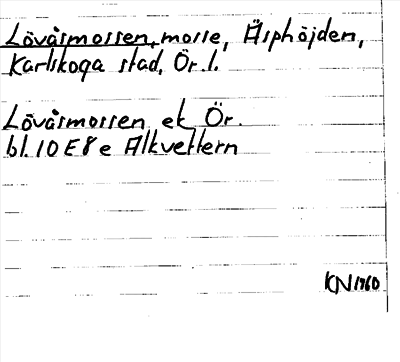 Lövåsmossen, mosse, Äsphöjden,
Karlskoga stad, Ör. l.
Lövåsmossen ek Ör.
bl. 10E8e Alkvettern
KN 1960